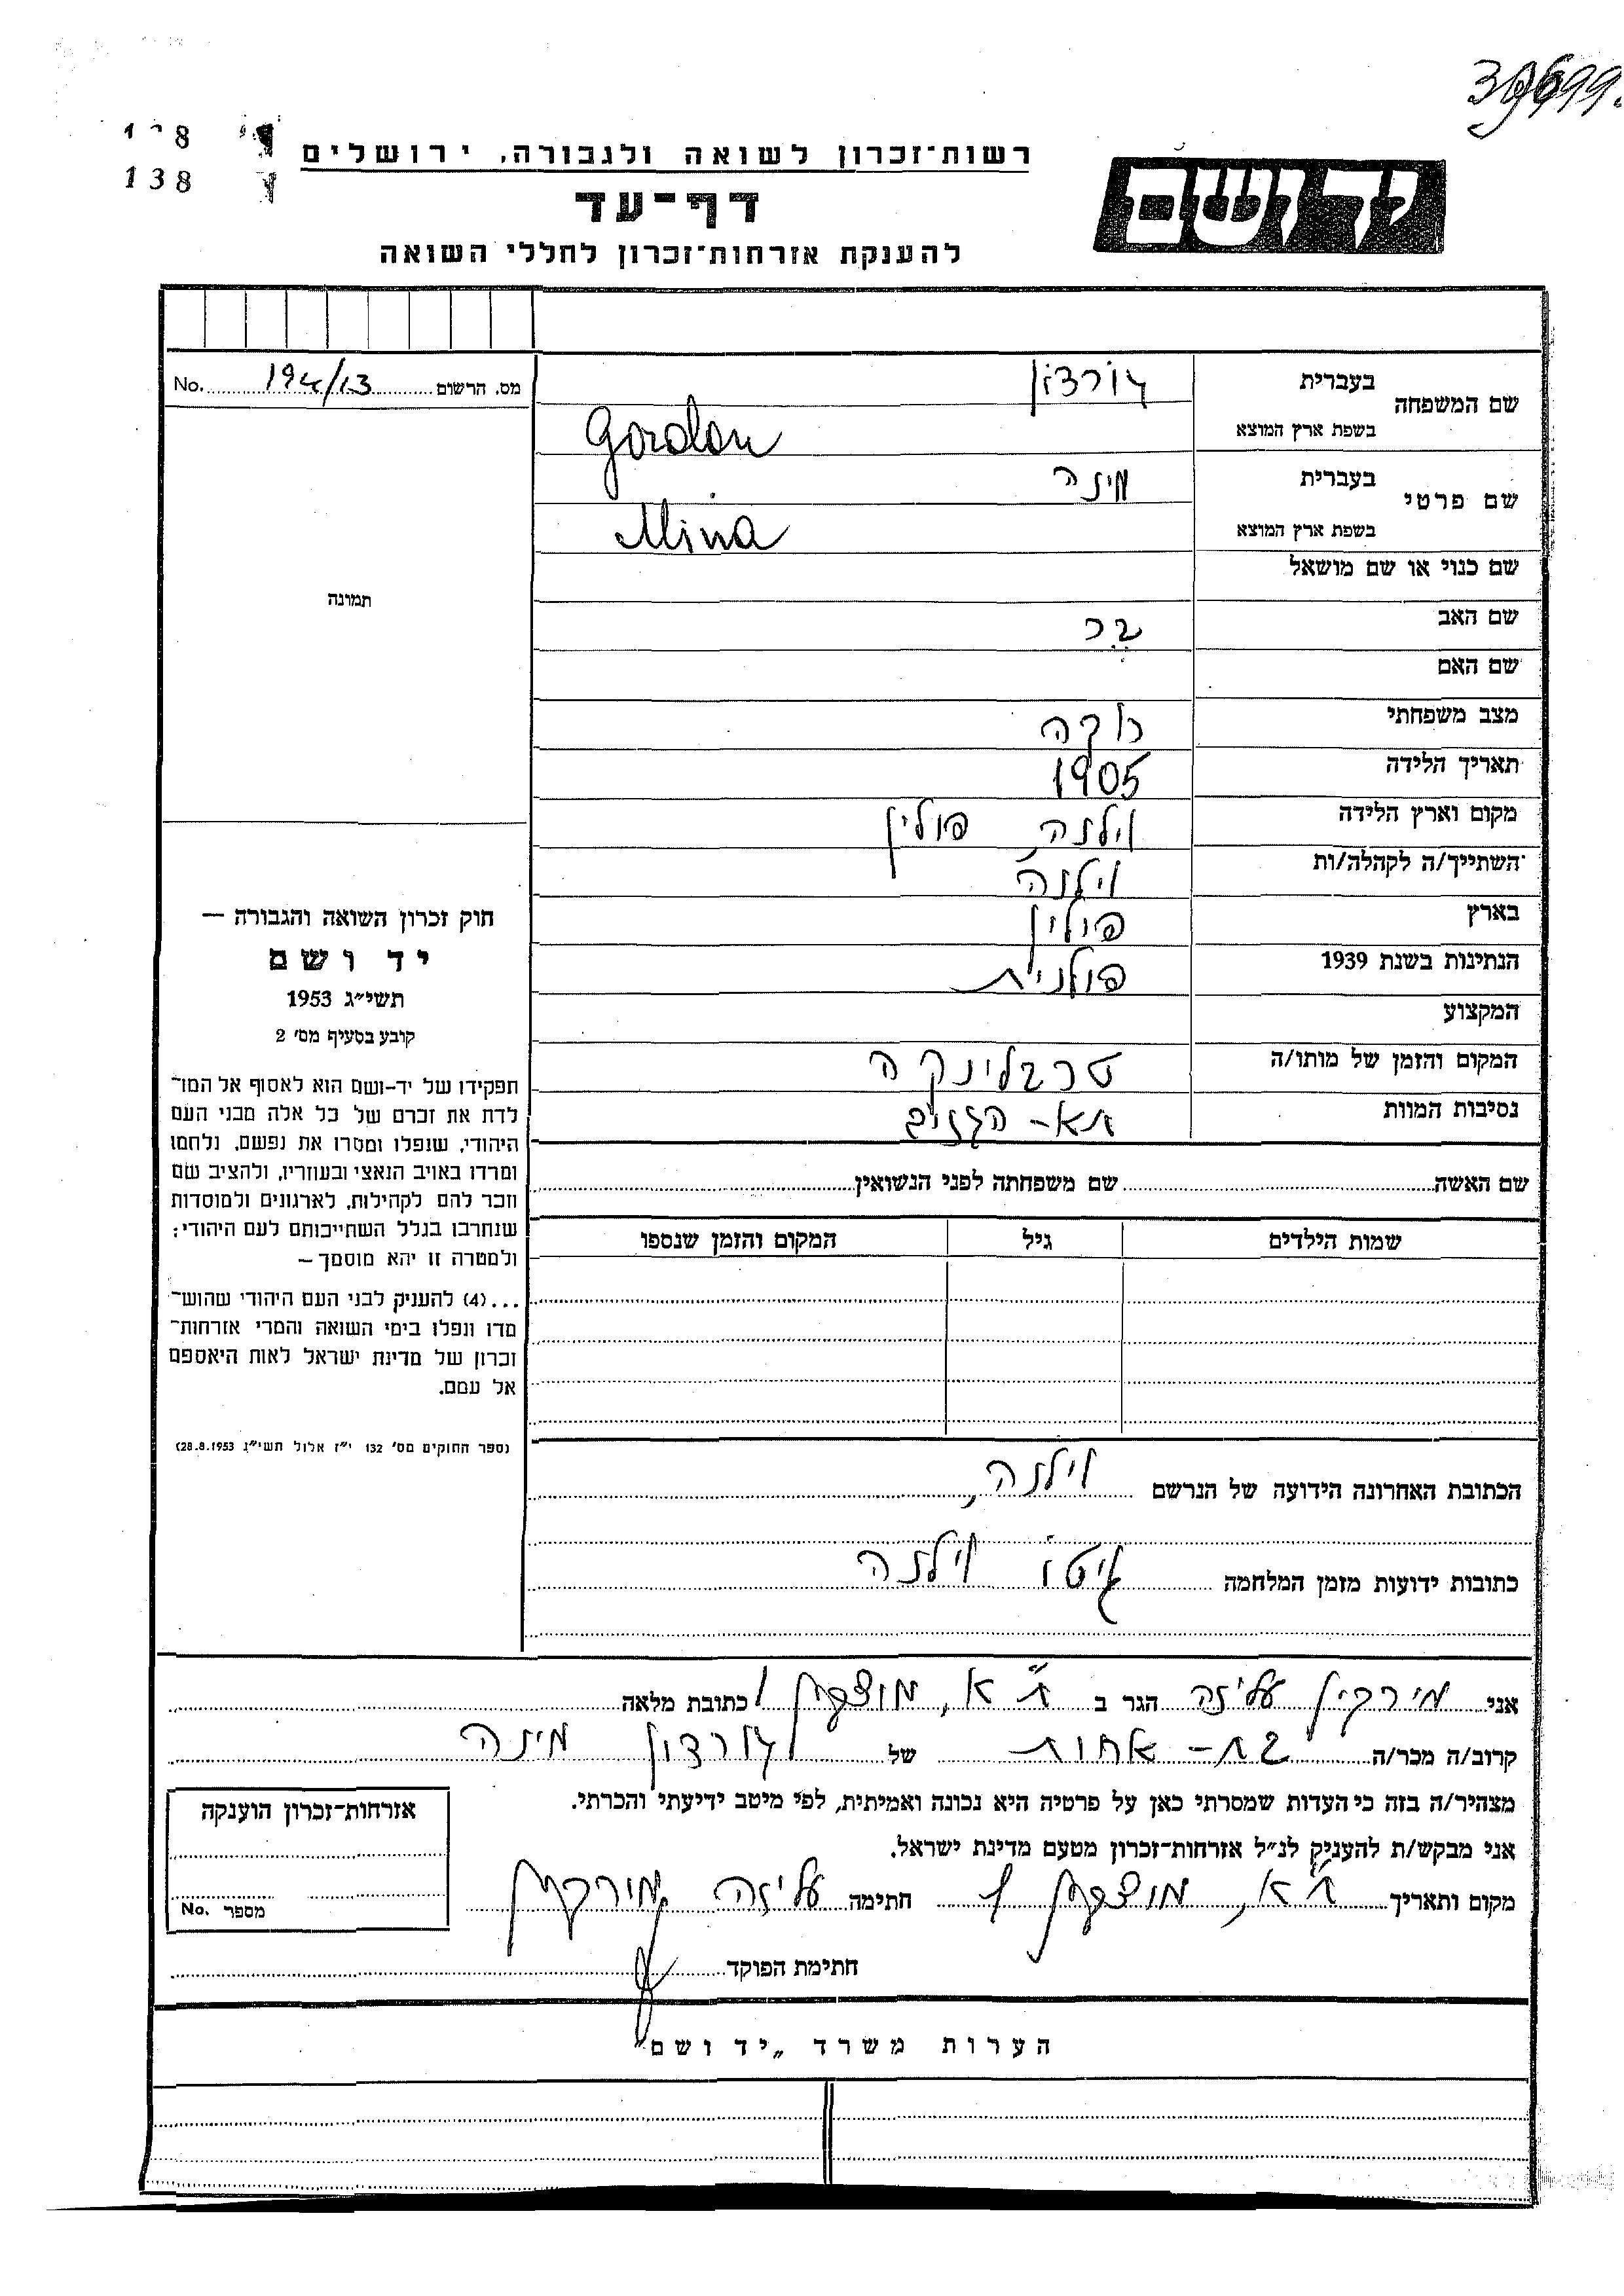 138
138
רשות־זכרון לשואה ולגבורה, ירושלים
יד ושם
דף־עד
להענקת אזרחות־זכרון לחללי השואה
מס. הרשום 194/13 No.
שם המשפחה
בעברית גורדון
בשפת ארץ המוצא Gordon
שם פרטי
בעברית מינה
בשפת ארץ המוצא Mina
שם כנוי או שם מושאל
שם האב בר
שם האם
מצב משפחתי רוקה
תאריך הלידה 1905
מקום וארץ הלידה וילנה, פולין
השתייך/ה לקהלה/ות וילנה
בארץ פולין
הנתינות בשנת 1939 פולנית
המקצוע
המקום והזמן של מותו/ה טרבלינקה
נסיבות המוות תא-הגזים
תמונה
חוק זכרון השואה והגבורה —
יד ושם
תשי״ג 1953
קובע בסעיף מס׳ 2
תפקידו של יד-ושם הוא לאסוף אל המו־
לדת את זכרם של כל אלה מבני העם
היהודי, שנפלו ומסרו את נפשם, נלחמו
ומרדו באויב הנאצי ובעוזריו, ולהציב שם
וזכר להם לקהילות, לארגונים ולמוסדות
שנחרבו בגלל השתייכותם לעם היהודי;
ולמטרה זו יהא מוסמך—
...(4) להעניק לבני העם היהודי שהוש־
מדו ונפלו בימי השואה והמרי אזרחות־
זכרון של מדינת ישראל לאות היאספם
אל עמם.
(ספר החוקים מס׳ 132 י״ז אלול תשי״ג 28.8.1953)
שם האשה שם משפחתה לפני הנשואין
שמות הילדים גיל המקום והזמן שנספו
הכתובת האחרונה הידועה של הנרשם וילנה,
כתובות ידועות מזמן המלחמה גיטו וילנה
אני מירקין עליזה הגר ב ת״א, מוצקין 1 כתובת מלאה
קרוב/ה מכר/ה בת-אחות של גורדון מינה
מצהיר/ה בזה כי העדות שמסרתי כאן על פרטיה היא נכונה ואמיתית, לפי מיטב ידיעתי והכרתי.
אני מבקש/ת להעניק לנ״ל אזרחות־זכרון מטעם מדינת ישראל.
מקום ותאריך ת״א, מוצקין 1 חתימה עליזה מירקין
חתימת הפוקד
אזרחות־זכרון הוענקה
מספר No.
הערות משרד „יד ושם"